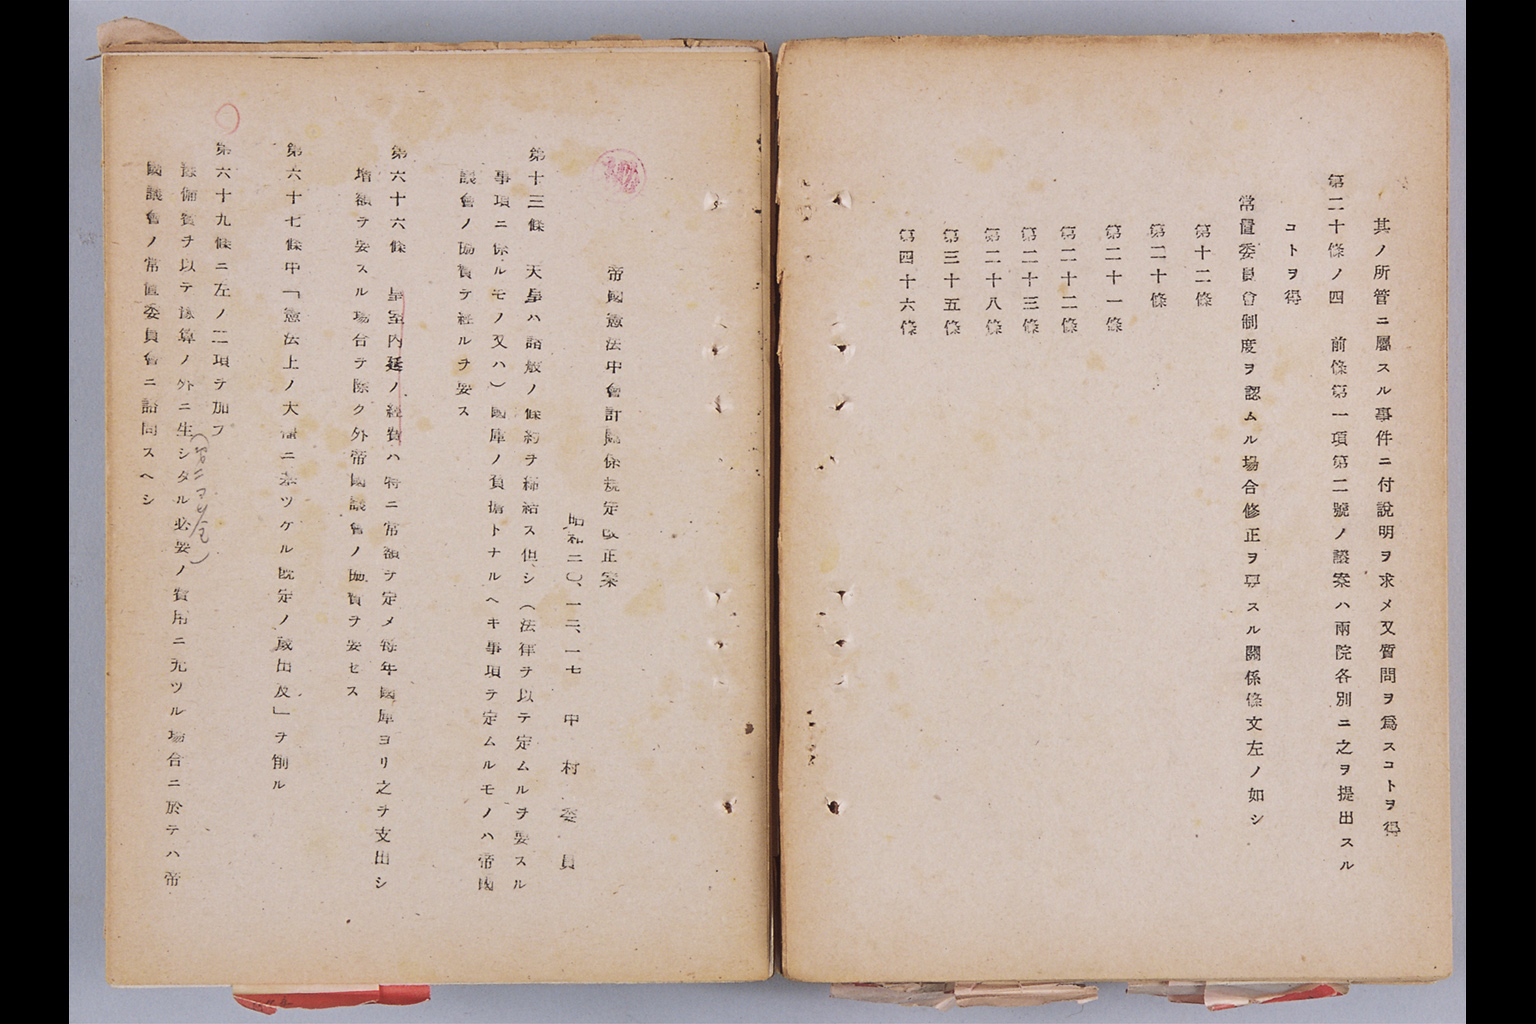 其ノ所管ニ屬スル事件ニ付說明ヲ求メ又質問ヲ爲スコトヲ得
第二十條ノ四　前條第一項第二號ノ議案ハ兩院各別ニ之ヲ提出スル
コトヲ得
常置委員會制度ヲ認ムル場合修正ヲ要スル關係條文左ノ如シ
第十二條
第二十條
第二十一條
第二十二條
第二十三條
第二十八條
第三十五條
第四十六條
帝國憲法中會計關係規定改正案
昭和二〇、一二、一七　中村委員
第十三條　天皇ハ諸般ノ條約ヲ締結ス但シ（法律ヲ以テ定ムルヲ要スル
事項ニ係ルモノ又ハ）國庫ノ負擔トナルヘキ事項ヲ定ムルモノハ帝國
議會ノ協贊ヲ經ルヲ要ス
第六十六條　皇室內廷ノ經費ハ特ニ常額ヲ定メ每年國庫ヨリ之ヲ支出シ
增額ヲ要スル場合ヲ除ク外帝國議會ノ協贊ヲ要セス
第六十七條中「憲法上ノ大權ニ基ツケル旣定ノ歲出及」ヲ削ル
第六十九條ニ左ノ二項ヲ加フ
豫備費ヲ以テ豫算ノ外ニ生シタル必要ノ費用ニ充ツル場合ニ於テハ帝
國議會ノ常置委員會ニ諮問スヘシ